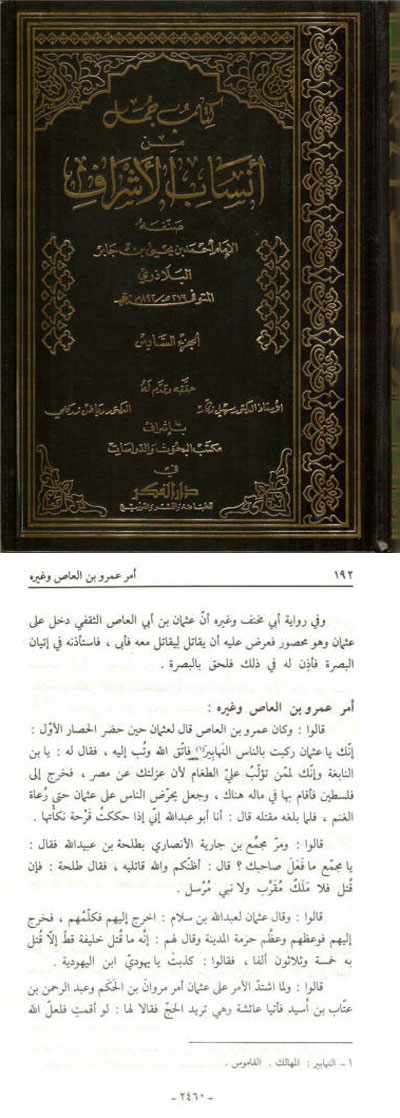 كتاب جمل
من
أنساب الأشراف
صنفه
الإمام أحمد بن يحيى بن جابر
البلاذري
المتوفى ٢٧٩ هـ / ٨٩٢ م
الجزء السادس
حققه وقدم له
الأستاذ الدكتور سهيل زكار الدكتور رياض زركلي
بإشراف
مكتب البحوث والدراسات
في
دار الفكر
للطباعة والنشر والتوزيع
١٩٢ أمر عمرو بن العاص وغيره
وفي رواية أبي مخنف وغيره أنّ عثمان بن أبي العاص الثقفي دخل على
عثمان وهو محصور فعرض عليه أن يقاتل ليقاتل معه فأبى ، فاستأذنه في إتيان
البصرة فأذِن له في ذلك فلحق بالبصرة .
أمر عمرو بن العاص وغيره :
قالوا : وكان عمرو بن العاص قال لعثمان حين حضر الحصار الأوّل :
إنّك يا عثمان ركبت بالناس النهابير(١) فاتّق الله وتُب إليه ، فقال له : يا بن
النابغة وإنّك لممّن تؤلّبُ عليّ الطغام لأن عزلتك عن مصر ، فخرج إلى
فلسطين فأقام بها في ماله هناك ، وجعل يحرّض الناس على عثمان حتى رُعاة
الغنم ، فلما بلغه مقتله قال : أنا أبو عبدالله إني إذا حككتُ قَرْحة نكأتُها .
قالوا : ومرّ مجمّع بن جارية الأنصاري بطلحة بن عبيدالله فقال :
يا مجمّع ما فَعَلَ صاحبك ؟ قال : أظنّكم والله قاتليه ، فقال طلحة : فإن
قُتل فلا مَلَكٌ مُقَرَّب ولا نبي مُرْسل .
قالوا : وقال عثمان لعبدالله بن سلام : اخرج إليهم فكلّمْهم ، فخرج
إليهم فوعظهم وعظَّم حرمة المدينة وقال لهم : إنَّه ما قُتل خليفة قطّ إلّا قُتل
به خمسة وثلاثون ألفا ، فقالوا : كذبتَ يا يهوديّ ابن اليهودية .
قالوا : ولما اشتدّ الأمر على عثمان أمر مروانَ بن الحَكَم وعبد الرحمن بن
عتّاب بن أَسيد فأتيا عائشة وهي تريد الحجّ فقالا لها : لو أقمتِ فلعلّ الله
١- النهابير : المهالك . القاموس .
- ٢٤٦٠ -